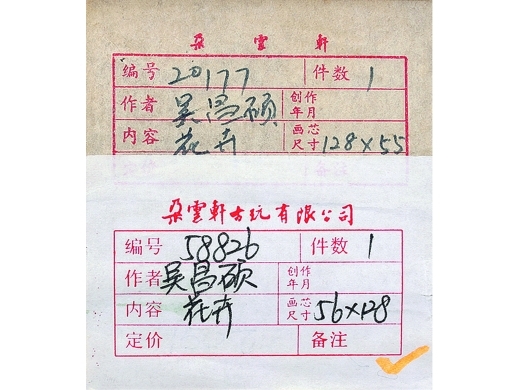 朵雲軒
编号 20177 件数 1
作者 吴昌硕 创作年月
内容 花卉 画芯尺寸 128×55
朵雲軒古玩有限公司
编号 58826 件数 1
作者 吴昌硕 创作年月
内容 花卉 画芯尺寸 56×128
定价 备注